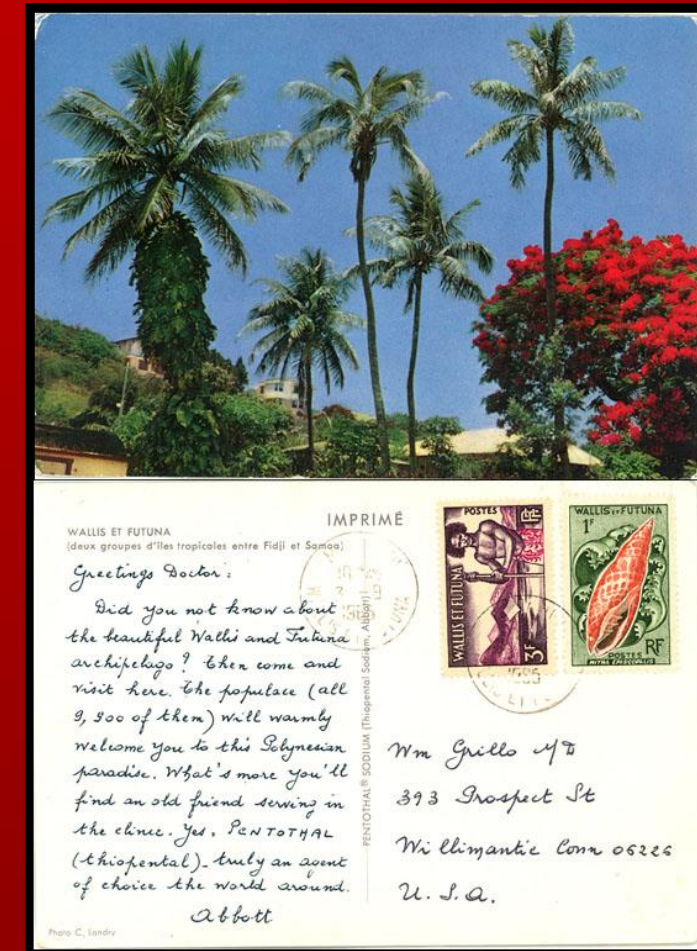 WALLIS ET FUTUNA
(deux groupes d'îles tropicales entre Fidji et Samoa)
IMPRIMÉ
Greetings Doctor:
Did you not know about
the beautiful Wallis and Futuna
archipelago? Then come and
visit here. The populace (all
9,900 of them) will warmly
welcome you to this Polynesian
paradise. What's more you'll
find an old friend serving in
the clinic. Yes, PENTOTHAL
(thiopental) - truly an agent
of choice the world around.
Abbott
Photo C. Landry
PENTOTHAL® SODIUM (Thiopental Sodium, Abbott)
POSTES
RF
WALLIS ET FUTUNA
3F
WALLIS ET FUTUNA
1F
POSTES
RF
MITRA EPISCOPALIS
Wm Grillo MD
393 Prospect St
Willimantic Conn 06226
U.S.A.